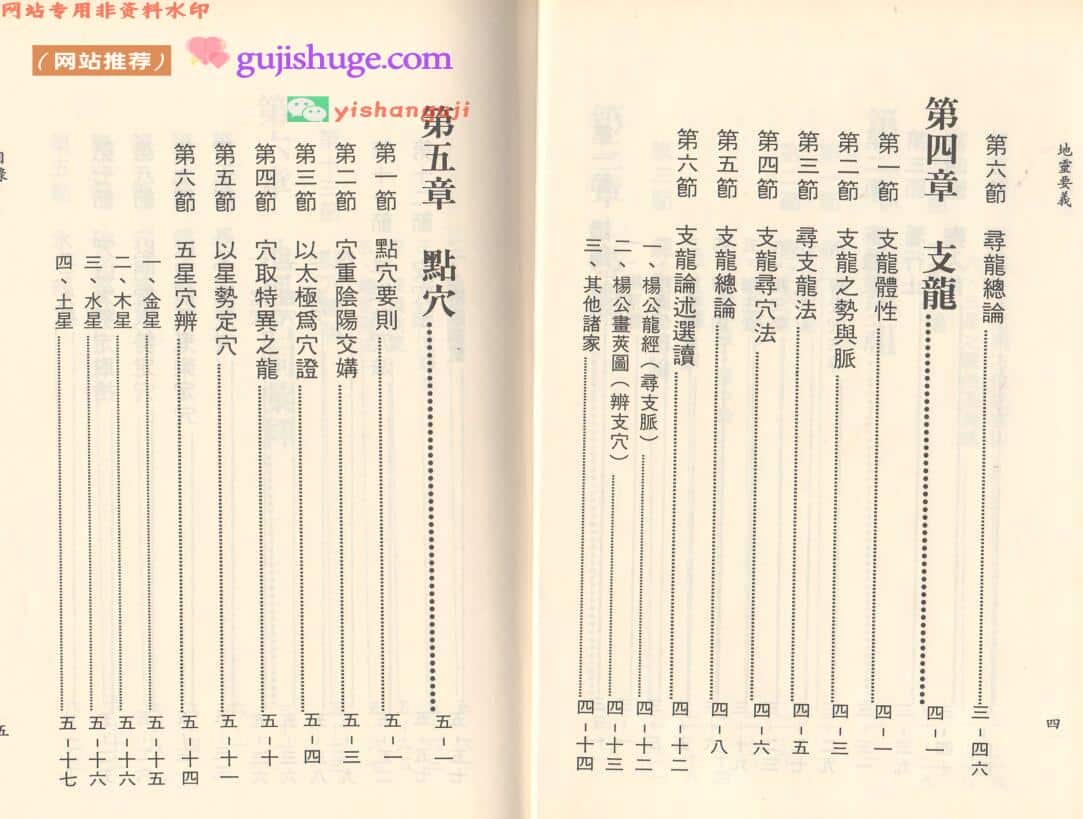 网站专用非资料水印
（网站推荐）
gujishuge.com
yishanguji
地靈要義
四
第六節 尋龍總論 三-四六
第四章 支龍 四-一
第一節 支龍體性 四-一
第二節 支龍之勢與脈 四-三
第三節 尋支龍法 四-五
第四節 支龍尋穴法 四-六
第五節 支龍總論 四-八
第六節 支龍論述選讀 四-十二
一、楊公龍經（尋支脈） 四-十二
二、楊公畫莢圖（辨支穴） 四-十三
三、其他諸家 四-十四
第五章 點穴 五-一
第一節 點穴要則 五-一
第二節 穴重陰陽交媾 五-三
第三節 以太極爲穴證 五-四
第四節 穴取特異之龍 五-十
第五節 以星勢定穴 五-十一
第六節 五星穴辨 五-十四
一、金星 五-十五
二、木星 五-十六
三、水星 五-十六
四、土星 五-十七
五